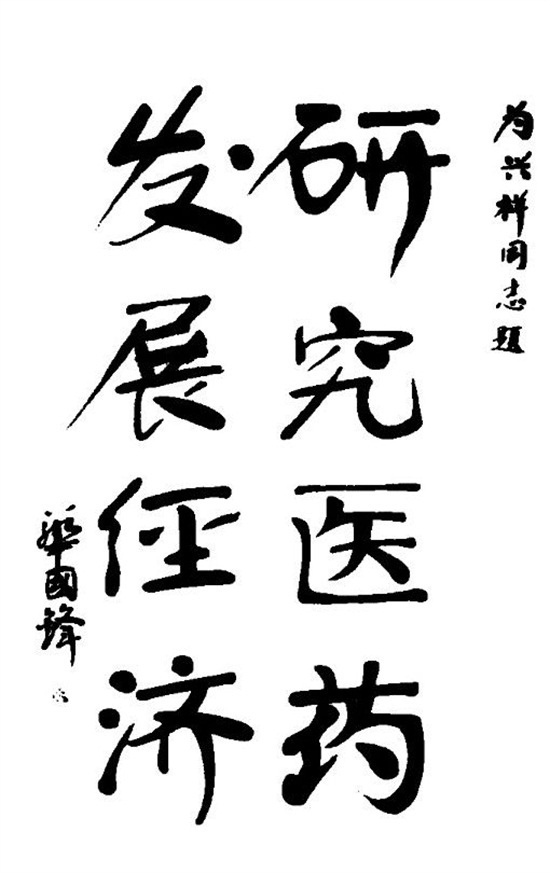 为兴祥同志题
研究医药
发展经济
华国锋